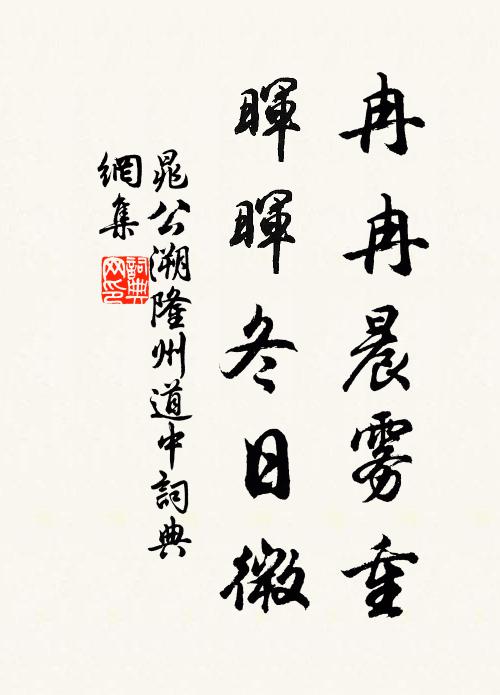 冉冉晨雾重
暉暉冬日微
晁公溯隆州道中詞典
網集
詞典
网印